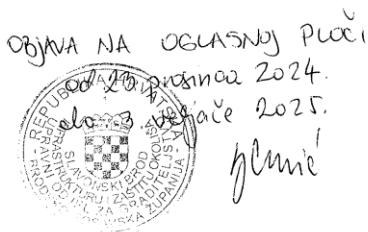 OBJAVA NA OGLASNOJ PLOČI
od 23 prosinca 2024.
do 3 veljače 2025.
REPUBLIKA HRVATSKA
BRODSKO-POSAVSKA ŽUPANIJA
UPRAVNI ODJEL ZA GRADITELJSTVO
INFRASTRUKTURU I ZAŠTITU OKOLIŠA
SLAVONSKI BROD